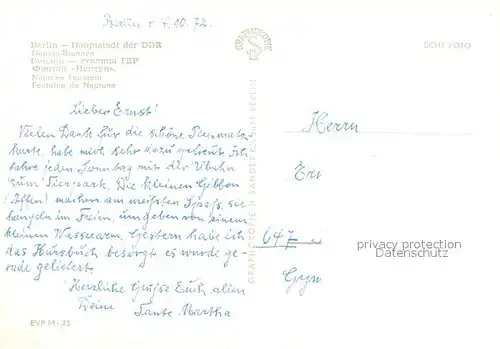 Berlin d. 7.10.72.
Berlin — Hauptstadt der DDR
Neptun-Brunnen
Берлин — столица ГДР
Фонтан «Нептун»
Neptune Fountain
Fontaine de Neptune
GRAPHOKOPIE
ECHT FOTO
Lieber Ernst!
Vielen Dank für die schöne
karte, habe mich sehr dazu gefreut. Ich
fahre jeden Sonntag mit der Ubahn
zum Tierpark. Die kleinen Gibbon
(Affen) machen am meisten Spaß, sie
hangeln im Freien, umgeben von einem
kleinen Wasserarm. Gestern habe ich
das Kursbuch besorgt es wurde ge-
rade geliefert.
Herzliche Grüße Euch allen
Deine
Tante Martha
EVP M -,25
GRAPHOKOPIE H. SANDER KG BERLIN
Herrn
647
privacy protection
Datenschutz